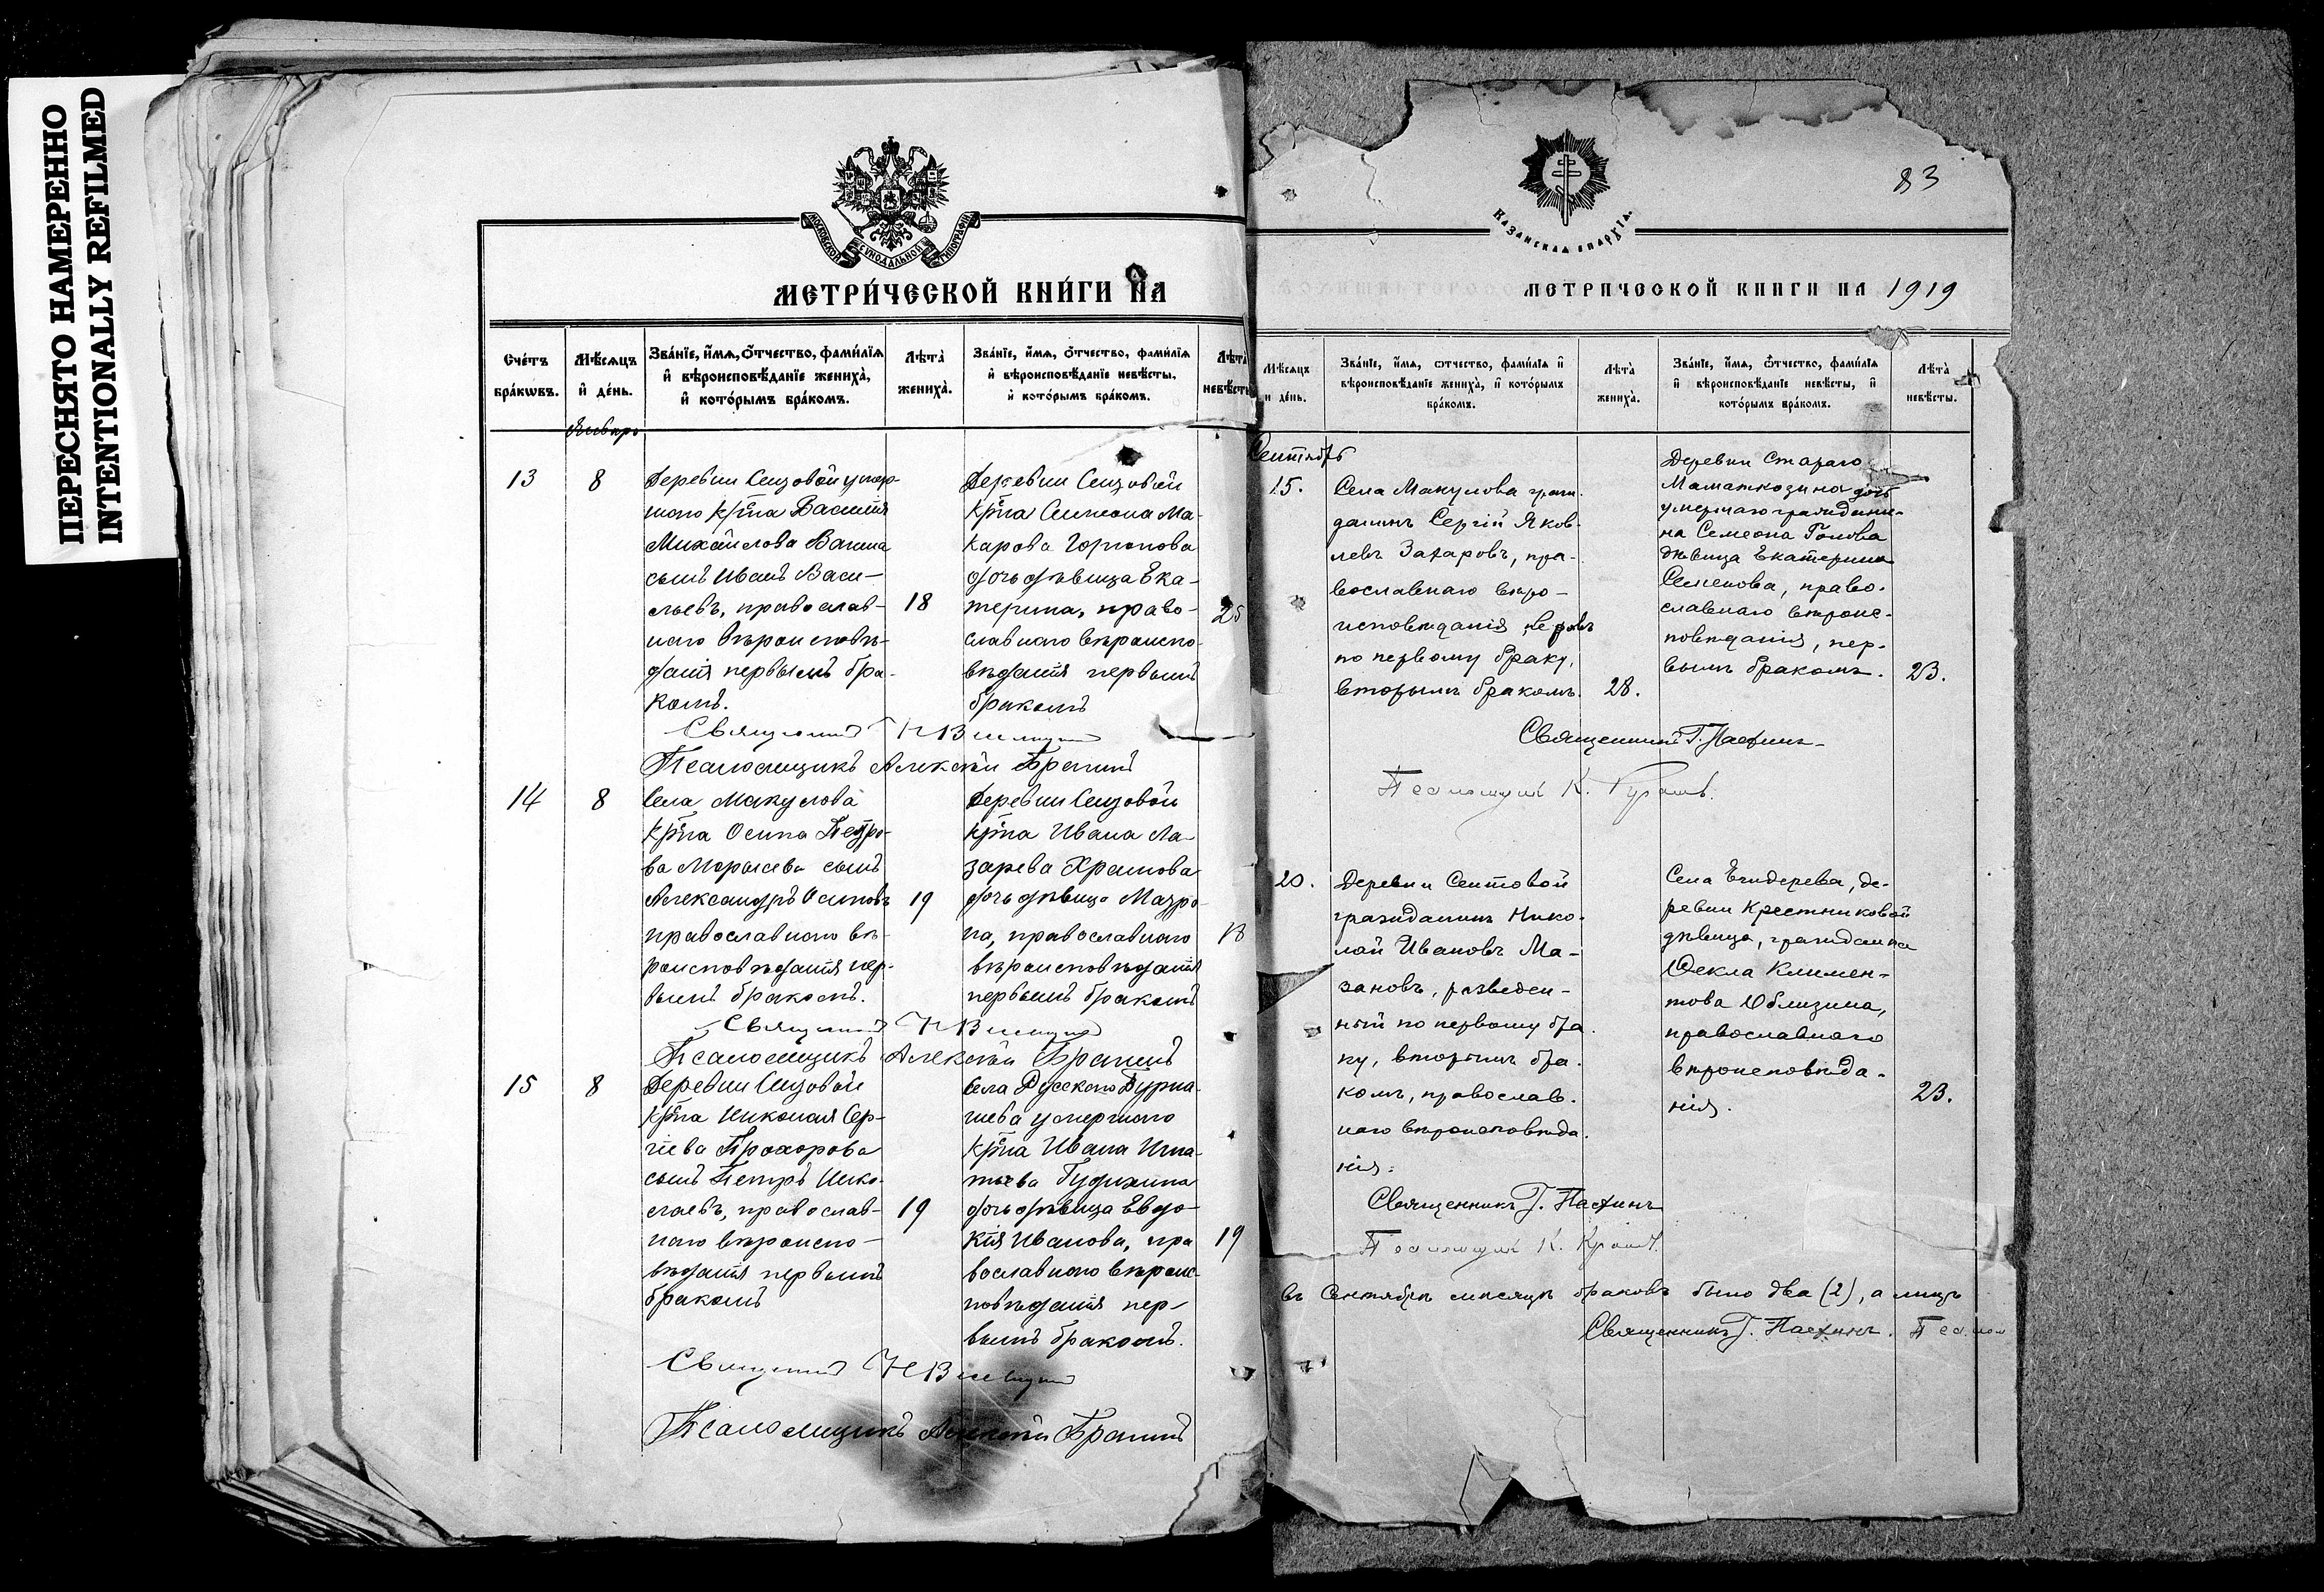 ПЕРЕСНЯТО НАМЕРЕННО
INTENTIONALLY REFILMED
МОСКОВСКОЙ СѴНОДАЛЬНОЙ ТИПОГРАФІИ
МЕТРИ́ЧЕСКОЙ КНИ́ГИ НА
Сче́тъ бра́кѡвъ.
Мѣ́сяцъ и҆ де́нь.
Зва́нїе, и҆́мѧ, ѻ҆́тчество, фами́лїѧ и҆ вѣроисповѣ́данїе жениха̀, и҆ кото́рымъ бра́комъ.
Лѣта̀ жениха̀.
Зва́нїе, и҆́мѧ, ѻ҆́тчество, фами́лїѧ и҆ вѣроисповѣ́данїе невѣ́сты, и҆ кото́рымъ бра́комъ.
Лѣта̀ невѣ́сты
Январь
13
8
Деревни Сеизовой умер-
шаго кр̃на Василія
Михайлова Ванина
сынъ Иванъ Васи-
льевъ, православ-
наго вѣроисповѣ-
данія первымъ бра-
комъ.
18
Деревни Сеизовой
кр̃на Симеона Ма-
карова
дочь дѣвица Ека-
терина, право-
славнаго вѣроиспо-
вѣданія первымъ
бракомъ
25
Священникъ Н
Псаломщикъ Алексѣй
14
8
Села Макулова
кр̃на Осипа Петро-
ва сынъ
Александръ Осиповъ
православнаго вѣ-
роисповѣданія пер-
вымъ бракомъ.
19
Деревни Сеизовой
кр̃на Ивана Ла-
зарева Храмова
дочь дѣвица Матро-
на, православнаго
вѣроисповѣданія
первымъ бракомъ
18
Священникъ Н
Псаломщикъ Алексѣй
15
8
Деревни Сеизовой
кр̃на Николая Сер-
гіева Прохорова
сынъ Петръ Нико-
лаевъ, православ-
наго вѣроиспо-
вѣданія первымъ
бракомъ
19
Села Русскаго Бурна-
шева умершаго
кр̃на Ивана Игна-
тьева
дочь дѣвица Евдо-
кія Иванова, пра
вославнаго вѣроис-
повѣданія пер-
вымъ бракомъ.
19
Священникъ Н
Псаломщикъ Алексѣй
83
КАЗАНСКАѦ ЕПАРХЇѦ.
МЕТРИЧЕСКОЙ КНИГИ НА 1919
Мѣсяцъ и де́нь.
Зва́нїе, и҆́мѧ, ѻтчество, фами́лїѧ и҆ вѣроисповѣ́данїе жениха̀, и҆ кото́рымъ бра́комъ.
Лѣта̀ жениха̀.
Зва́нїе, и҆́мѧ, ѻ҆́тчество, фами́лїѧ и҆ вѣроисповѣ́данїе невѣ́сты, и҆ кото́рымъ бра́комъ.
Лѣта̀ невѣ́сты.
Сентябрь
15.
Села Макулова граж-
данинъ Сергій Яков-
левъ Захаровъ, пра-
вославнаго вѣро-
исповѣданія,
по первому браку,
вторымъ бракомъ.
28.
Деревни Стараго
Маматкозина дочь
умершаго граждани-
на Семеона
дѣвица Екатерина
Семенова, право-
славнаго вѣроис-
повѣданія, пер-
вымъ бракомъ.
23.
Священникъ Г.
Псаломщикъ К.
20.
Деревни Сеитовой
гражданинъ Нико-
лай Ивановъ Ма-
зановъ, разведен-
ный по первому бра
ку, вторымъ бра-
комъ, православ-
наго вѣроисповѣда
нія.
Села Егидерева, де-
ревни Крестниковой
дѣвица, гражданка
Ѳекла Климен-
това Облизина,
православнаго
вѣроисповѣда-
нія.
23.
Священникъ Г.
Псаломщикъ К.
въ Сентябрѣ мѣсяцѣ браковъ было два (2), а лицъ
Священникъ Г. Псалом